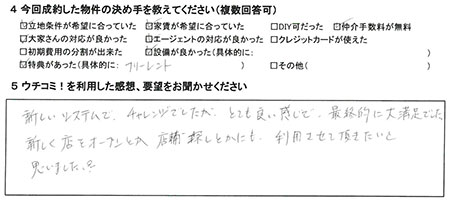 4 今回成約した物件の決め手を教えてください(複数回答可)
☑立地条件が希望に合っていた ☑家賃が希望に合っていた □DIY可だった ☑仲介手数料が無料
☑大家さんの対応が良かった ☑エージェントの対応が良かった □クレジットカードが使えた
□初期費用の分割が出来た ☑設備が良かった(具体的に: )
☑特典があった(具体的に: フリーレント ) □その他( )
5 ウチコミ!を利用した感想、要望をお聞かせください
新しいシステムで、チャレンジでしたが、とても良い感じで、最終的に大満足でした。
新しく店をオープンとか、店舗探しとかにも、利用させて頂きたいと
思いました。